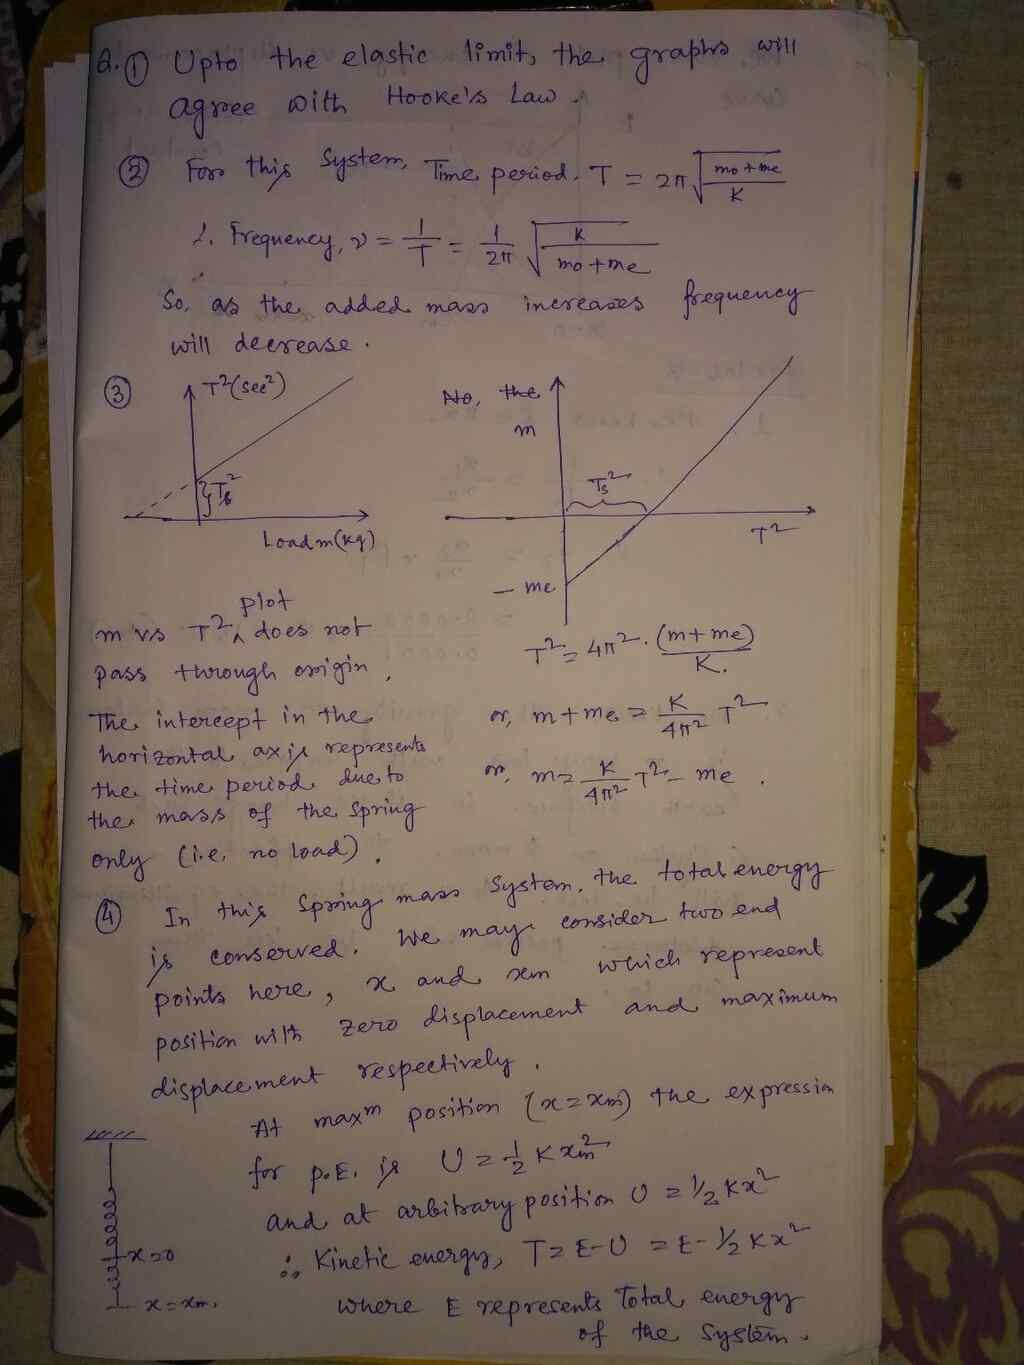 Q. ① Upto the elastic limit, the graphs will
agree with Hooke's Law.
② For this system, Time period. T = 2π√(mo + me / K)
∴ Frequency, ν = 1/T = 1/2π √(K / mo + me)
So, as the added mass increases frequency
will decrease.
③ T²(sec²)
Ts²
Load m(kg)
No, the
m
Ts²
T²
- me
m vs T² plot does not
pass through origin.
The intercept in the
horizontal axis represents
the time period due to
the mass of the spring
only (i.e. no load).
T² = 4π². (m + me) / K.
or, m + me = K/4π² T²
or, m = K/4π² T² - me.
④ In this spring mass system, the total energy
is conserved. We may consider two end
points here, x and xm which represent
position with zero displacement and maximum
displacement respectively.
At maxᵐ position (x = xm) the expression
for P.E. is U = ½ K xm²
and at arbitrary position U = ½ Kx²
∴ Kinetic energy, T = E - U = E - ½ Kx²
where E represents Total energy
of the system.
x = 0
x = xm.